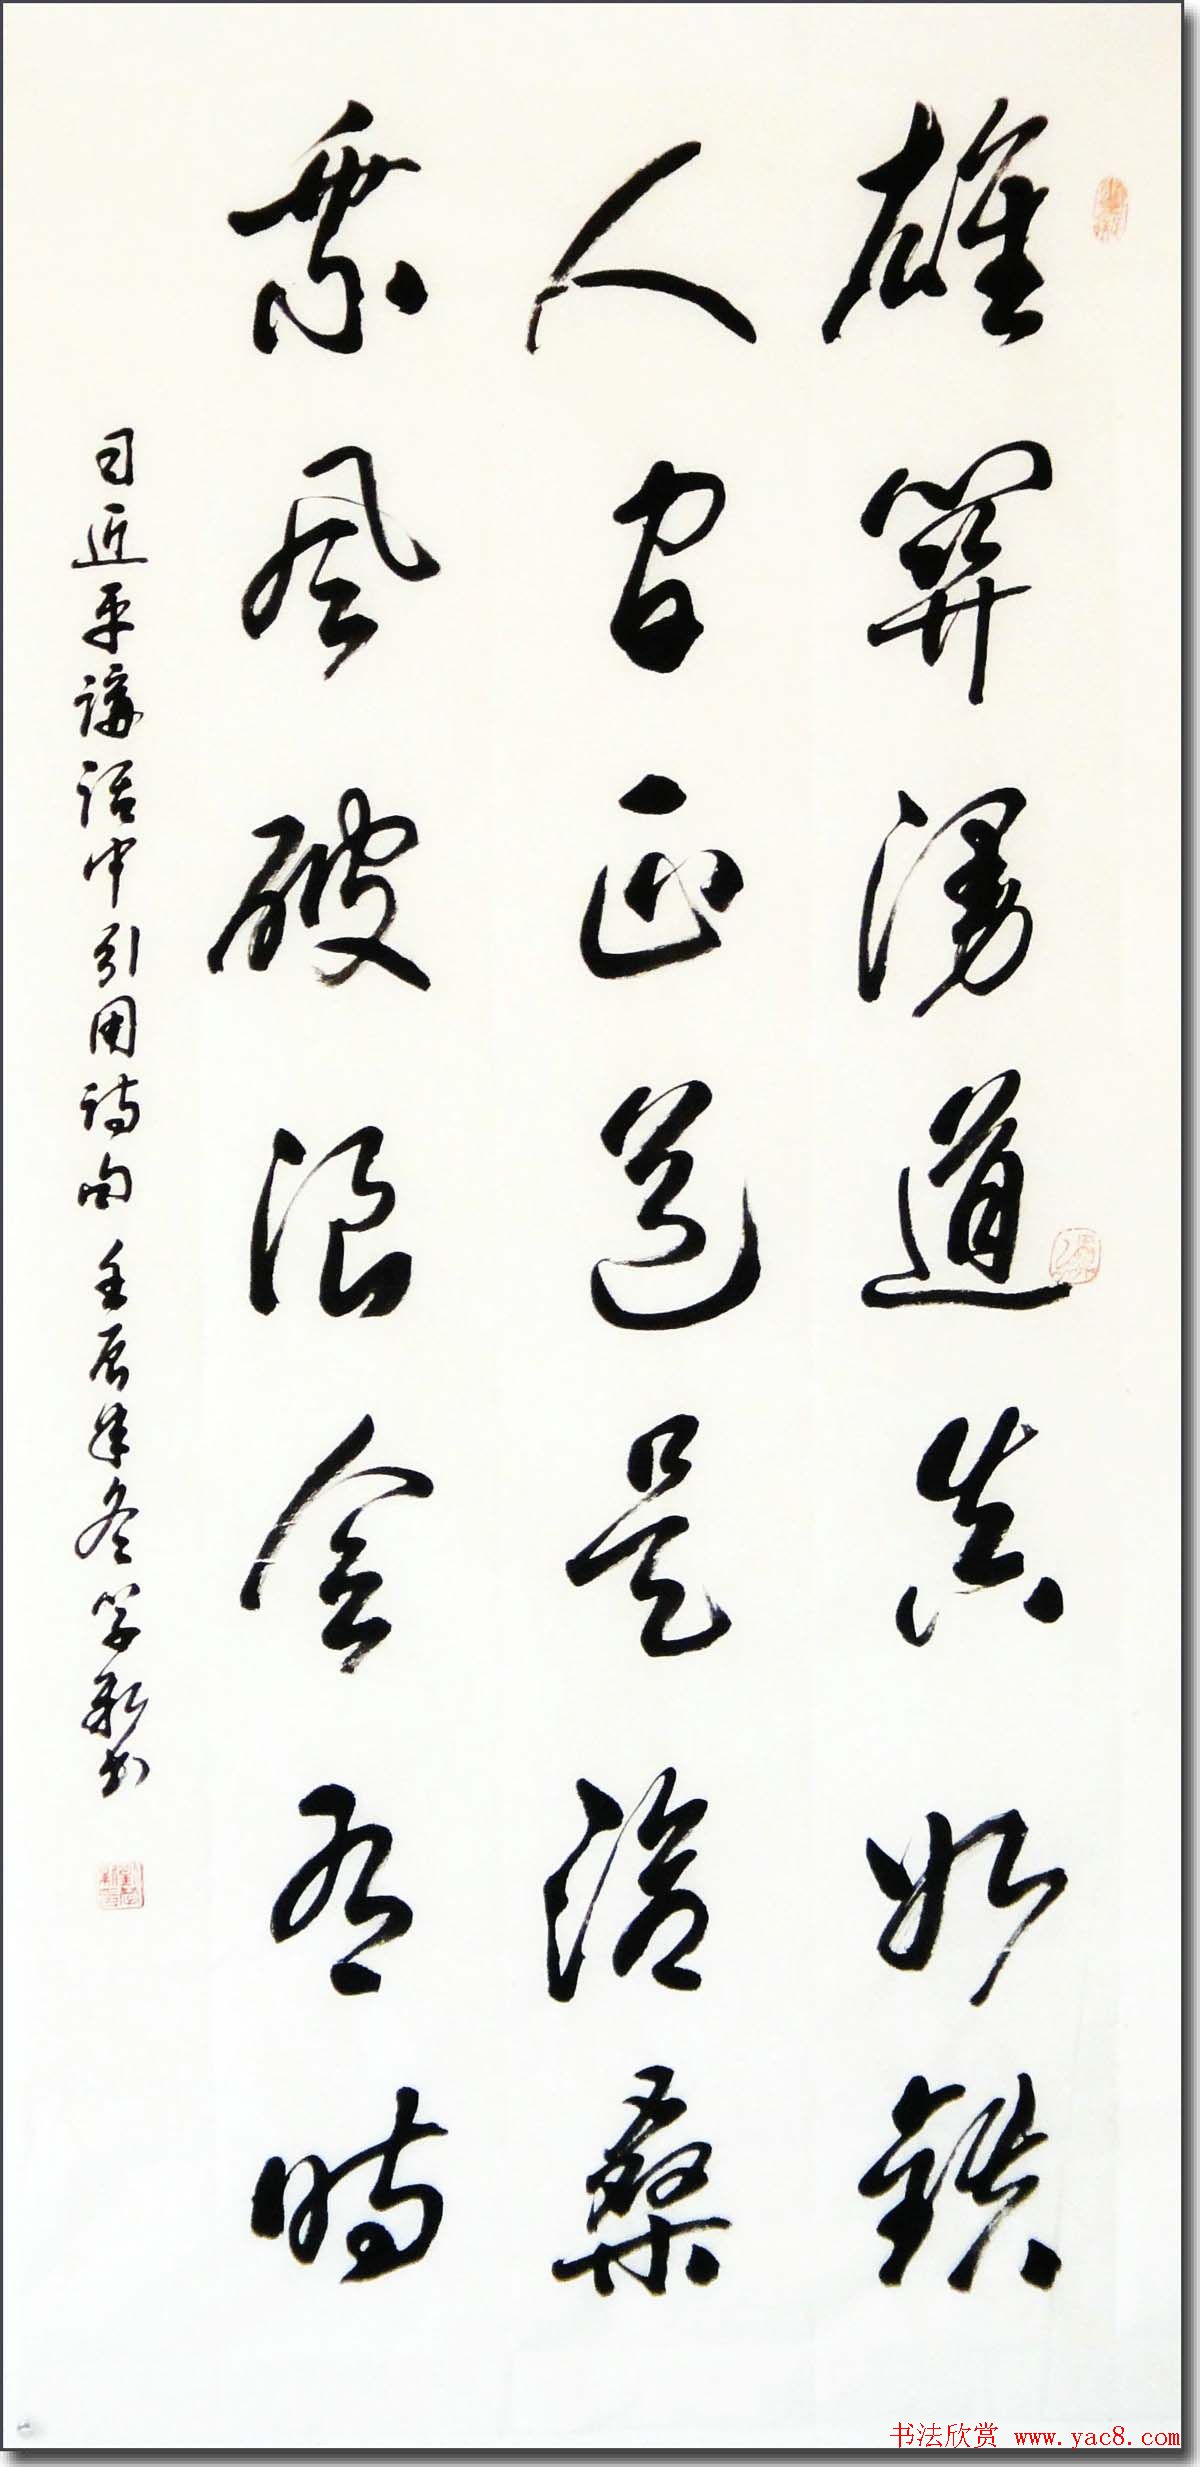 雄関漫道真如鉄
人间正道是滄桑
乘风破浪会有時
习近平講话中引用诗句 壬辰年冬 学新书
书法欣赏 www.yac8.com